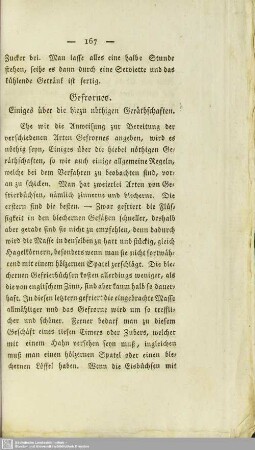 — 167 —
Zucker bei. Man lasse alles eine halbe Stunde
stehen, seihe es dann durch eine Serviette und das
kühlende Getränk ist fertig.
Gefrornes.
Einiges über die hiezu nöthigen Geräthschaften.
Ehe wir die Anweisung zur Bereitung der
verschiedenen Arten Gefrornes angeben, wird es
nöthig seyn, Einiges über die hiebei nöthigen Ge-
räthschaften, so wie auch einige allgemeine Regeln,
welche bei dem Verfahren zu beobachten sind, vor-
an zu schicken. Man hat zweierlei Arten von Ge-
frierbüchsen, nämlich zinnerne und blecherne. Die
erstern sind die besten. — Zwar gefriert die Flüs-
sigkeit in den blechernen Gefäßen schneller, deshalb
aber gerade sind sie nicht zu empfehlen, denn dadurch
wird die Masse in denselben zu hart und stückig, gleich
Hagelkörnern, besonders wenn man sie nicht fortwäh-
rend mit einem hölzernen Spatel zerschlägt. Die ble-
chernen Gefrierbüchsen kosten allerdings weniger, als
die von englischem Zinn, sind aber kaum halb so dauer-
haft. In diesen letztern gefriert die eingebrachte Masse
allmähliger und das Gefrorne wird um so treffli-
cher und schöner. Ferner bedarf man zu diesem
Geschäft eines tiefen Eimers oder Zubers, welcher
mit einem Hahn versehen seyn muß, ingleichen
muß man einen hölzernen Spatel oder einen ble-
chernen Löffel haben. Wenn die Eisbüchsen mit